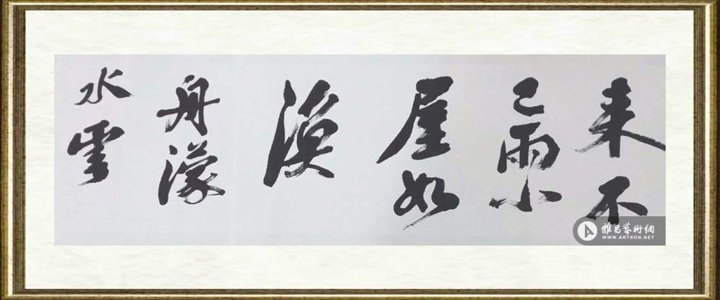 来不
已雨小
屋如
漁
舟濛
水雲
雅昌藝術網
WWW.ARTRON.NET